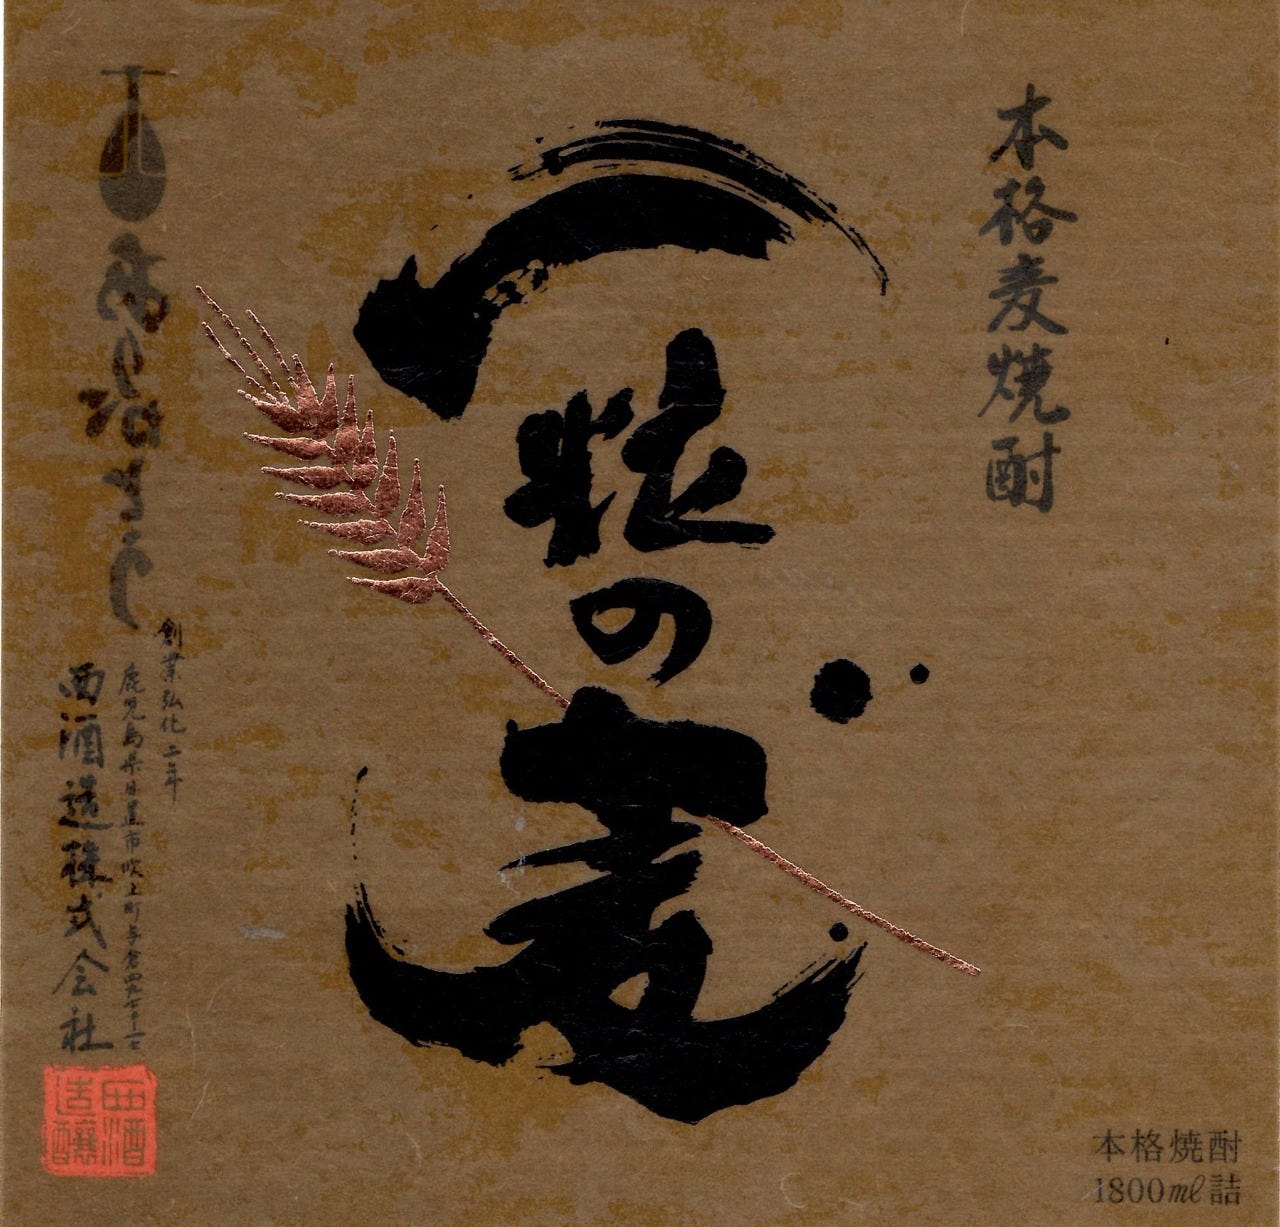 本格麦焼酎
一粒の麦
ありがとう
創業弘化二年
鹿児島県日置市吹上町与倉
西酒造株式会社
西酒
造醸
本格焼酎
1800ml詰